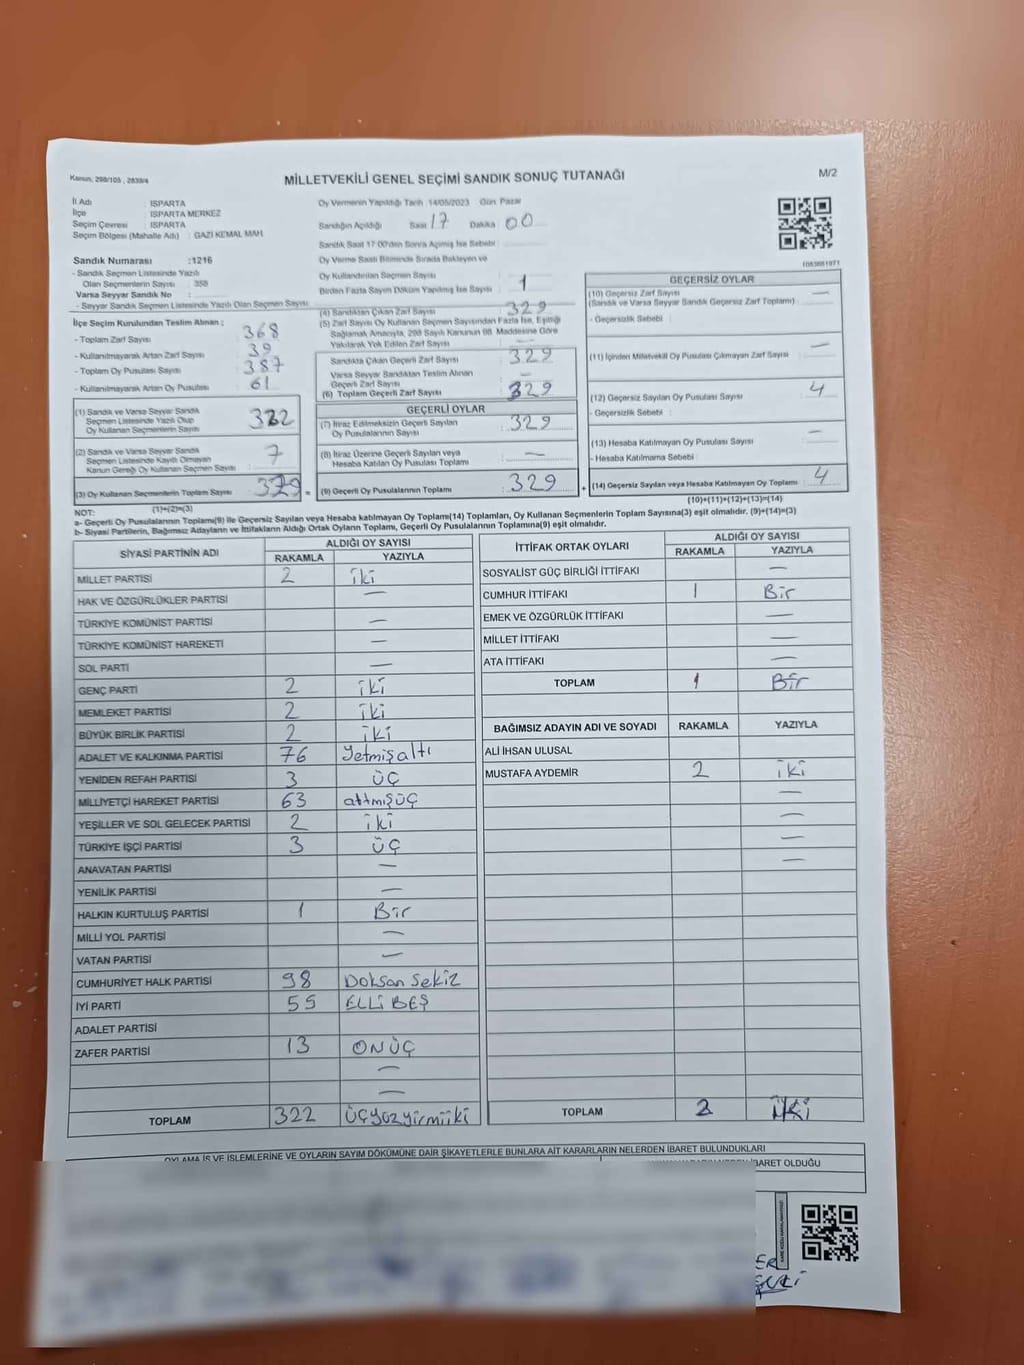 Kanun, 298/105 , 2839/4
MİLLETVEKİLİ GENEL SEÇİMİ SANDIK SONUÇ TUTANAĞI
M/2
İl Adı : ISPARTA
İlçe : ISPARTA MERKEZ
Seçim Çevresi : ISPARTA
Seçim Bölgesi (Mahalle Adı) : GAZİ KEMAL MAH.
Oy Vermenin Yapıldığı Tarih 14/05/2023 Gün Pazar
Sandığın Açıldığı Saat 17 Dakika 00
Sandık Saat 17:00'den Sonra Açılmış İse Sebebi :
Oy Verme Saati Bitiminde Sırada Bekleyen ve
Oy Kullandırılan Seçmen Sayısı
Birden Fazla Sayım Döküm Yapılmış İse Sayısı : 1
Sandık Numarası :1216
- Sandık Seçmen Listesinde Yazılı
Olan Seçmenlerin Sayısı : 358
Varsa Seyyar Sandık No :
- Seyyar Sandık Seçmen Listesinde Yazılı Olan Seçmen Sayısı :
İlçe Seçim Kurulundan Teslim Alınan ;
- Toplam Zarf Sayısı 368
- Kullanılmayarak Artan Zarf Sayısı 39
- Toplam Oy Pusulası Sayısı 387
- Kullanılmayarak Artan Oy Pusulası 61
(1) Sandık ve Varsa Seyyar Sandık
Seçmen Listesinde Yazılı Olup
Oy Kullanan Seçmenlerin Sayısı 322
(2) Sandık ve Varsa Seyyar Sandık
Seçmen Listesinde Kayıtlı Olmayan
Kanun Gereği Oy Kullanan Seçmen Sayısı : 7
(3) Oy Kullanan Seçmenlerin Toplam Sayısı 329 =
(1)+(2)=(3)
(4) Sandıktan Çıkan Zarf Sayısı 329
(5) Zarf Sayısı Oy Kullanan Seçmen Sayısından Fazla İse, Eşitliği
Sağlamak Amacıyla, 298 Sayılı Kanunun 98. Maddesine Göre
Yakılarak Yok Edilen Zarf Sayısı —
Sandıkta Çıkan Geçerli Zarf Sayısı 329
Varsa Seyyar Sandıktan Teslim Alınan
Geçerli Zarf Sayısı —
(6) Toplam Geçerli Zarf Sayısı : 329
GEÇERLİ OYLAR
(7) İtiraz Edilmeksizin Geçerli Sayılan
Oy Pusulalarının Sayısı : 329
(8) İtiraz Üzerine Geçerli Sayılan veya
Hesaba Katılan Oy Pusulası Toplamı : —
(9) Geçerli Oy Pusulalarının Toplamı : 329 +
GEÇERSİZ OYLAR
(10) Geçersiz Zarf Sayısı —
(Sandık ve Varsa Seyyar Sandık Geçersiz Zarf Toplamı) :
- Geçersizlik Sebebi :
(11) İçinden Milletvekili Oy Pusulası Çıkmayan Zarf Sayısı : —
(12) Geçersiz Sayılan Oy Pusulası Sayısı : 4
- Geçersizlik Sebebi :
(13) Hesaba Katılmayan Oy Pusulası Sayısı : —
- Hesaba Katılmama Sebebi :
(14) Geçersiz Sayılan veya Hesaba Katılmayan Oy Toplamı : 4
(10)+(11)+(12)+(13)=(14)
NOT:
a- Geçerli Oy Pusulalarının Toplamı(9) ile Geçersiz Sayılan veya Hesaba katılmayan Oy Toplamı(14) Toplamları, Oy Kullanan Seçmenlerin Toplam Sayısına(3) eşit olmalıdır. (9)+(14)=(3)
b- Siyasi Partilerin, Bağımsız Adayların ve İttifakların Aldığı Ortak Oyların Toplamı, Geçerli Oy Pusulalarının Toplamına(9) eşit olmalıdır.
SİYASİ PARTİNİN ADI ALDIĞI OY SAYISI
RAKAMLA YAZIYLA
MİLLET PARTİSİ 2 iki
HAK VE ÖZGÜRLÜKLER PARTİSİ —
TÜRKİYE KOMÜNİST PARTİSİ —
TÜRKİYE KOMÜNİST HAREKETİ —
SOL PARTİ —
GENÇ PARTİ 2 iki
MEMLEKET PARTİSİ 2 iki
BÜYÜK BİRLİK PARTİSİ 2 iki
ADALET VE KALKINMA PARTİSİ 76 Yetmişaltı
YENİDEN REFAH PARTİSİ 3 üç
MİLLİYETÇİ HAREKET PARTİSİ 63 altmışüç
YEŞİLLER VE SOL GELECEK PARTİSİ 2 iki
TÜRKİYE İŞÇİ PARTİSİ 3 üç
ANAVATAN PARTİSİ —
YENİLİK PARTİSİ —
HALKIN KURTULUŞ PARTİSİ 1 Bir
MİLLİ YOL PARTİSİ —
VATAN PARTİSİ —
CUMHURİYET HALK PARTİSİ 98 Doksan sekiz
İYİ PARTİ 55 ELLİ BEŞ
ADALET PARTİSİ
ZAFER PARTİSİ 13 ONÜÇ
—
—
TOPLAM 322 üçyüzyirmiiki
İTTİFAK ORTAK OYLARI ALDIĞI OY SAYISI
RAKAMLA YAZIYLA
SOSYALİST GÜÇ BİRLİĞİ İTTİFAKI —
CUMHUR İTTİFAKI 1 Bir
EMEK VE ÖZGÜRLÜK İTTİFAKI —
MİLLET İTTİFAKI —
ATA İTTİFAKI —
TOPLAM 1 Bir
BAĞIMSIZ ADAYIN ADI VE SOYADI RAKAMLA YAZIYLA
ALİ İHSAN ULUSAL
MUSTAFA AYDEMİR 2 iki
—
—
—
—
TOPLAM 2 iki
OYLAMA İŞ VE İŞLEMLERİNE VE OYLARIN SAYIM DÖKÜMÜNE DAİR ŞİKAYETLERLE BUNLARA AİT KARARLARIN NELERDEN İBARET BULUNDUKLARI
İBARET OLDUĞU